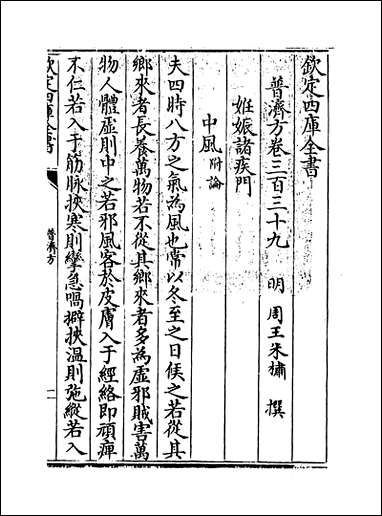 欽定四庫全書
普濟方卷三百三十九　明　周王朱橚　撰
姙娠諸疾門
中風附論
夫四時八方之氣為風也常以冬至之日候之若從其
鄉來者長養萬物若不從其鄉來者多為虛邪賊害萬
物人體虛則中之若邪風客於皮膚入于經絡即頑痺
不仁若入于筋脉挾寒則攣急喎僻挾温則弛縱若入
欽定四庫全書
普濟方
一